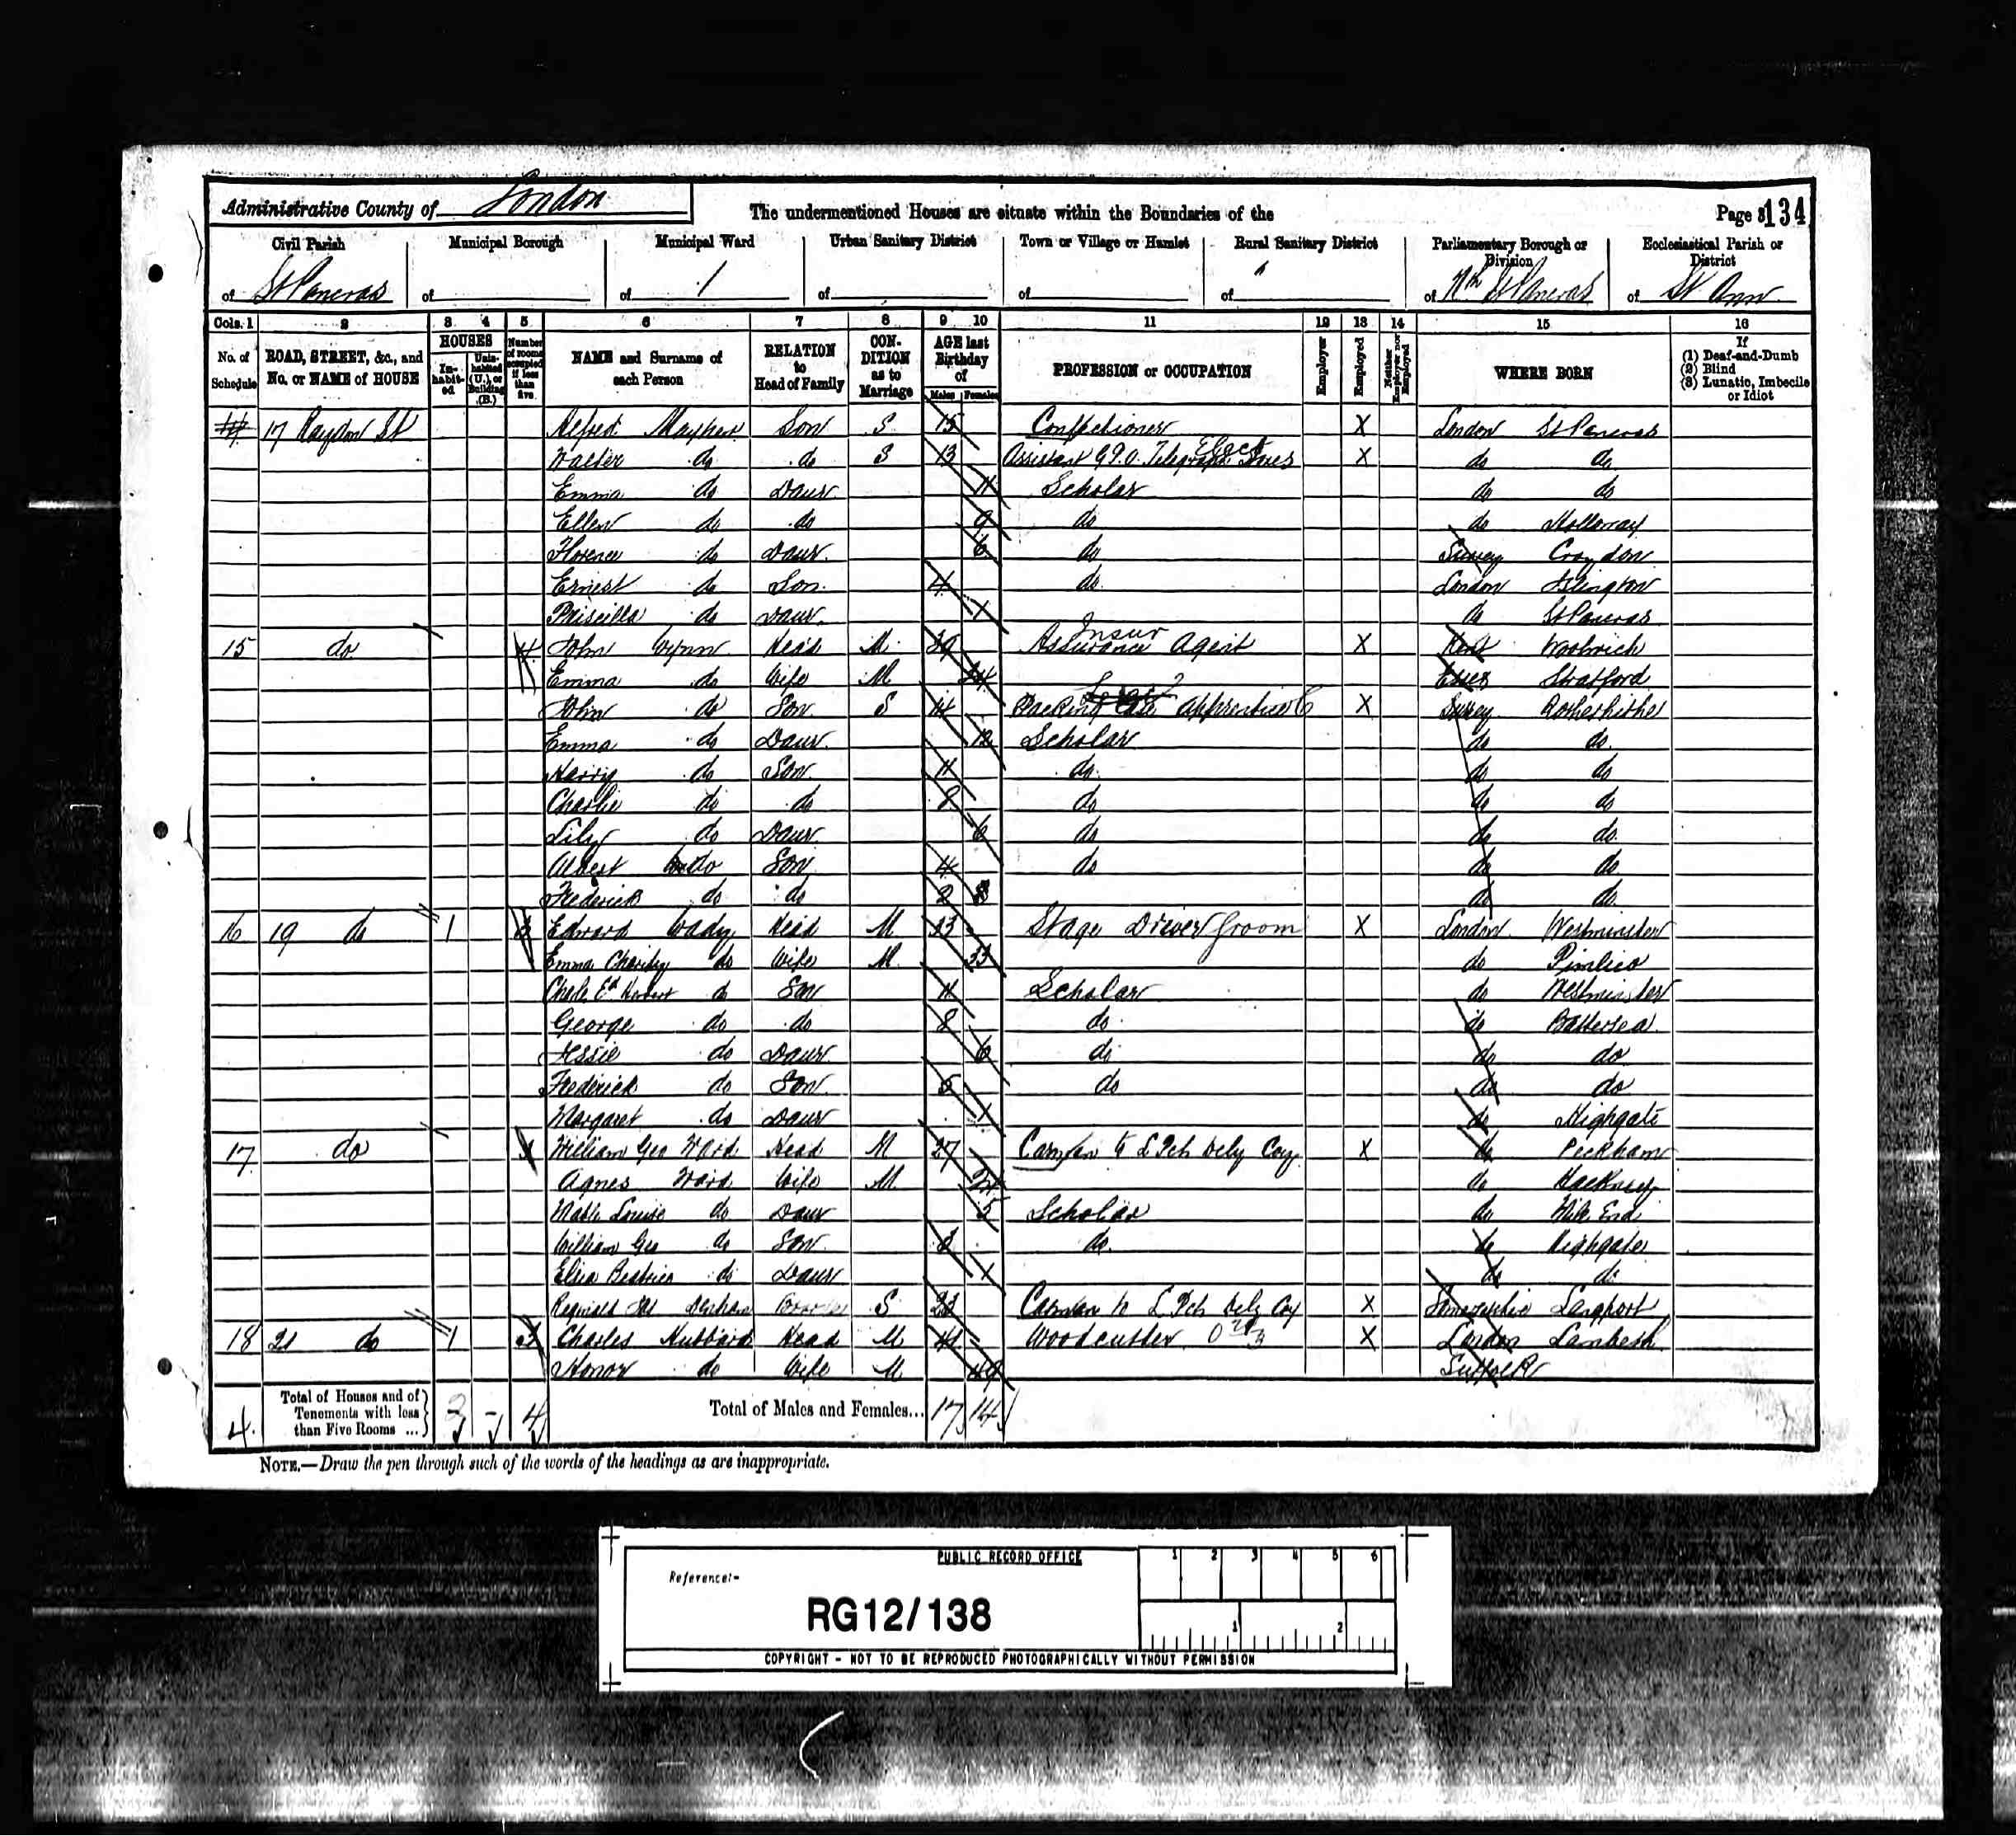 Administrative County of London The undermentioned Houses are situate within the Boundaries of the Page 134
Civil Parish Municipal Borough Municipal Ward Urban Sanitary District Town or Village or Hamlet Rural Sanitary District Parliamentary Borough or Division Ecclesiastical Parish or District
of St Pancras of of 1 of of of of Nth St Pancras of St Ann
Cols. 1 2 3 4 5 6 7 8 9 10 11 12 13 14 15 16
No. of Schedule ROAD, STREET, &c., and No. or NAME of HOUSE HOUSES Inhabited Uninhabited (U.), or Building (B.) Number of rooms occupied if less than five NAME and Surname of each Person RELATION to Head of Family CONDITION as to Marriage AGE last Birthday of Males Females PROFESSION or OCCUPATION Employer Employed Neither Employer nor Employed WHERE BORN If (1) Deaf-and-Dumb (2) Blind (3) Lunatic, Imbecile or Idiot
14 17 Raydon St Alfred Mayhew Son S 15 Confectioner X London St Pancras
Walter do do S 13 Assistant G.P.O. Telegraph X do do
Emma do Daur 11 Scholar do do
Ellen do do 9 do do Holloway
Florence do Daur 6 do Surrey Croydon
Ernest do Son 4 do London Islington
Priscilla do Daur 1 do St Pancras
15 do 4 John Wynn Head M 39 Assurance Insur Agent X Kent Woolwich
Emma do Wife M 34 Essex Stratford
John do Son S 14 Packing Case Apprentice X Surrey Rotherhithe
Emma do Daur 12 Scholar do do
Harry do Son 11 do do do
Charlie do do 8 do do do
Lily do Daur 6 do do do
Albert do Son 4 do do do
Frederick do do 2 do do
16 19 do 1 3 Edward Eady Head M 33 Stage Driver Groom X London Westminster
Emma Charity do Wife M 33 do Pimlico
Charle Ed Herbert do Son 11 Scholar do Westminster
George do do 8 do do Battersea
Jessie do Daur 6 do do do
Frederick do Son 5 do do do
Margaret do Daur 1 do Highgate
17 do William Geo Ward Head M 27 Carman to L Pcls Dely Coy X do Peckham
Agnes Ward Wife M do Hackney
Louise do Daur 5 Scholar do Mile End
William Geo do Son 3 do do Highgate
Eliza Beatrice do Daur 1 do do
Reginald Boarder S 23 Carman to L Pcls Dely Coy X Somersetshire Langport
18 21 do 1 Charles Hubbard Head M 41 Woodcutter X London Lambeth
Honor do Wife M 49 Suffolk
4 Total of Houses and of Tenements with less than Five Rooms ... 3 - 4 Total of Males and Females... 17 14
NOTE.—Draw the pen through such of the words of the headings as are inappropriate.
PUBLIC RECORD OFFICE 1 2 3 4 5 6
Reference:-
RG12/138 1 2
COPYRIGHT - NOT TO BE REPRODUCED PHOTOGRAPHICALLY WITHOUT PERMISSION